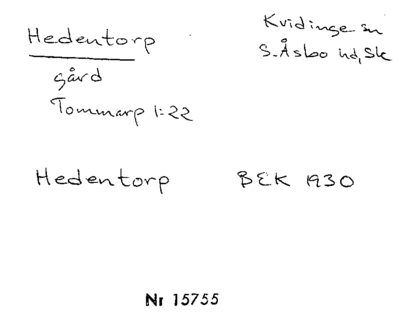 Hedentorp
Kvidinge sn
S. Åsbo hd, Sk
gård
Tommarp 1:22
Hedentorp BEK 1930
Nr 15755